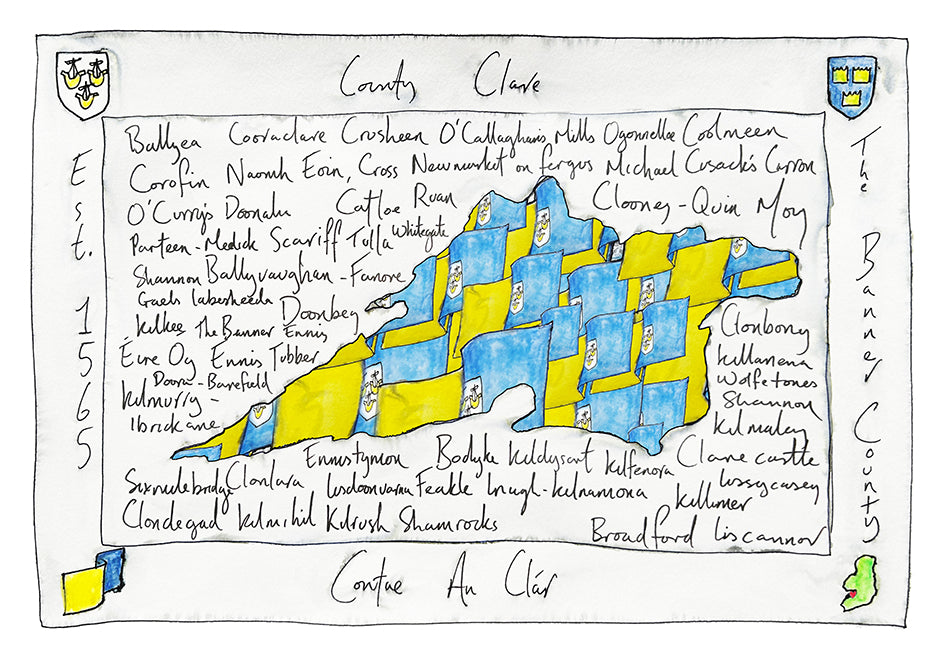 County Clare
Ballyea Cooraclare Crusheen O'Callaghan's Mills Ogonnelloe Coolmeen
Corofin Naomh Eoin, Cross Newmarket on fergus Michael Cusack's Carron
O'Curry's Doonaha Catloe Ruan Clooney - Quin Moy
Parteen - Meelick Scariff Tulla Whitegate
Shannon Ballyvaughan - Fanore
Gaels Labasheeda Doonbeg
Kilkee The Banner Ennis
Éire Og Ennis Tubber
Doora - Barefield
Kilmurry -
Ibrickane
Clonbony
Killanena
Wolfetones
Shannon
Kilmaley
Ennistymon Bodyke Kildysart Kilfenora Clarecastle
Sixmilebridge Clonlara Lisdoonvarna Feakle Inagh - Kilnamona Killimer Lissycasey
Clondegad Kilmihil Kilrush Shamrocks
Broadford Liscannor
Est. 1565
The Banner County
Contae An Chláir